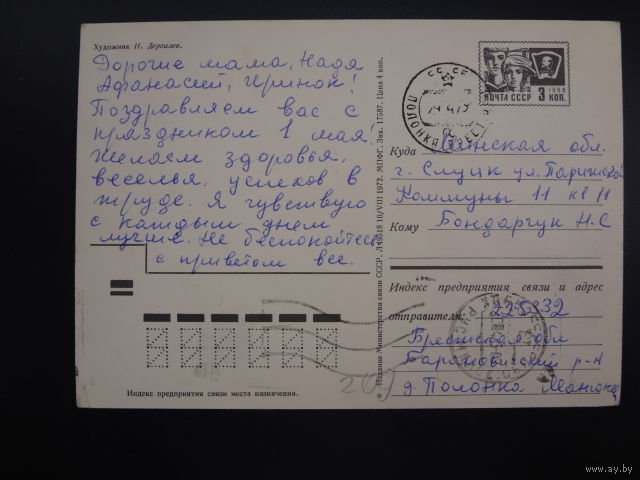 Художник И. Дергилев.
Дорогие мама, Надя
Афанасий, Иринок!
Поздравляем вас с
праздником 1 мая!
Желаем здоровья,
веселья, успехов в
труде. Я чувствую
с каждым днем
лучше. Не беспокойтесь
с приветом все.
Индекс предприятия связи места назначения.
Издание Министерства связи СССР. 10/VIII 1972. МПФГ. Зак. 17587. Цена 4 коп.
СССР
ПОЧТА СССР 3 КОП.
1966
Куда Минская обл.
г. Слуцк ул. Парижской
Коммуны 11 кв 11
Кому Бондарчук Н.С
Индекс предприятия связи и адрес
отправителя: 225332
Брестская обл
Барановичский р-н
д. Полонка
www.ay.by